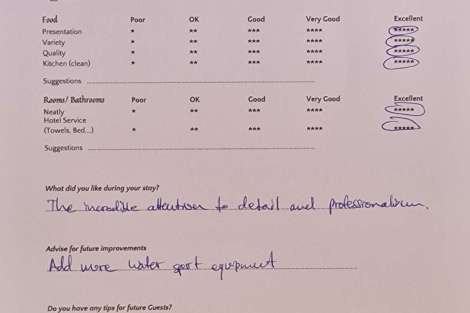 Food Poor OK Good Very Good Excellent
Presentation * ** *** **** *****
Variety * ** *** **** *****
Quality * ** *** **** *****
Kitchen (clean) * ** *** **** *****
Suggestions
Rooms/ Bathrooms Poor OK Good Very Good Excellent
Neatly * ** *** **** *****
Hotel Service
(Towels, Bed...) * ** *** **** *****
Suggestions
What did you like during your stay?
The incredible attention to detail and professionalism.
Advise for future improvements
Add more water sport equipment
Do you have any tips for future Guests?